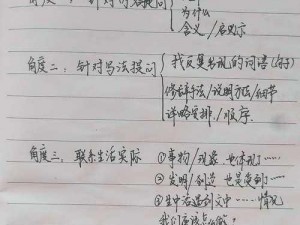 为什么
角度一：针对内容提问
含义/启示
角度二：针对写法提问
找反复出现的词语(句子)
修辞手法/说明方法/细节
详略安排/顺序
角度三：联系生活实际
①事物/现象 也体现……
②发明/创造 也是受到……
③生活中遇到文中……情况
我们应该怎么做？